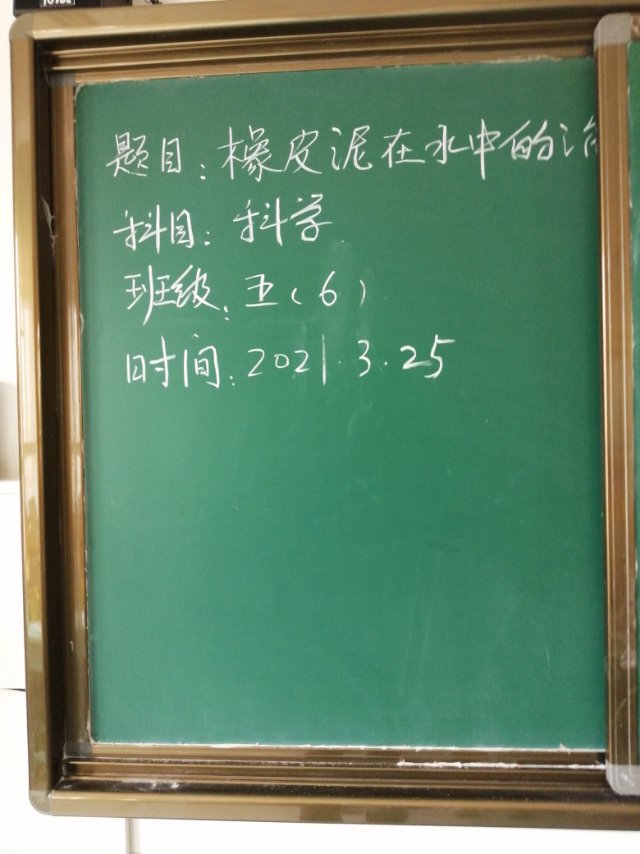 题目:橡皮泥在水中的
科目:科学
班级:五(6)
时间:2021.3.25